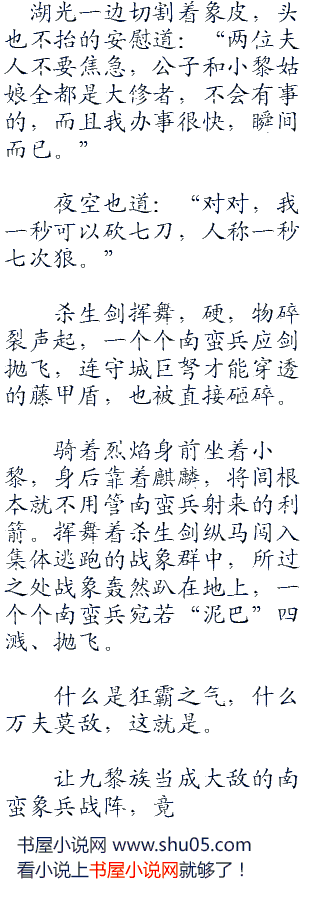 湖光一边切割着象皮，头
也不抬的安慰道：“两位夫
人不要焦急，公子和小黎姑
娘全都是大修者，不会有事
的，而且我办事很快，瞬间
而已。”
夜空也道：“对对，我
一秒可以砍七刀，人称一秒
七次狼。”
杀生剑挥舞，硬，物碎
裂声起，一个个南蛮兵应剑
抛飞，连守城巨弩才能穿透
的藤甲盾，也被直接砸碎。
骑着烈焰身前坐着小
黎，身后靠着麒麟，将闾根
本就不用管南蛮兵射来的利
箭。挥舞着杀生剑纵马闯入
集体逃跑的战象群中，所过
之处战象轰然趴在地上，一
个个南蛮兵宛若“泥巴”四
溅、抛飞。
什么是狂霸之气，什么
万夫莫敌，这就是。
让九黎族当成大敌的南
蛮象兵战阵，竟
书屋小说网 www.shu05.com
看小说上书屋小说网就够了！